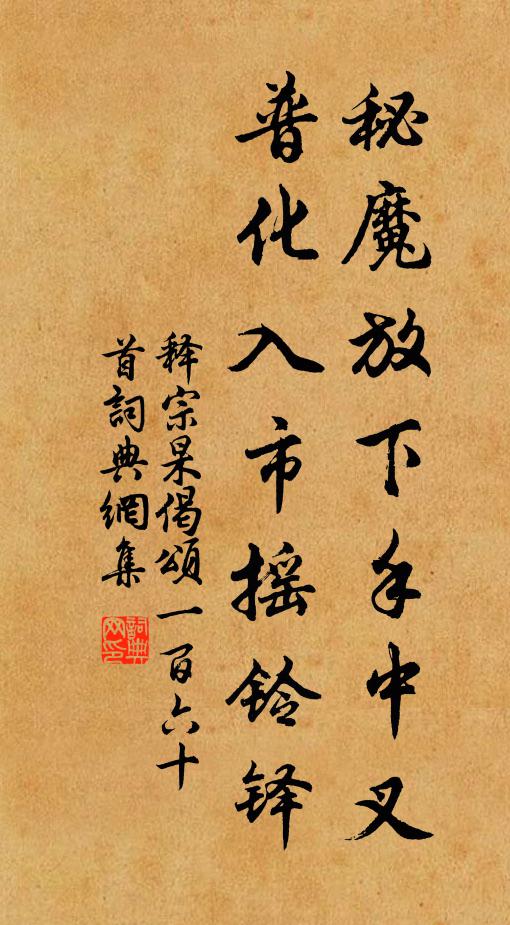 秘魔放下手中叉
普化入市摇铃铎
释宗杲偈颂一百六十
首詞典網集
詞典
网印